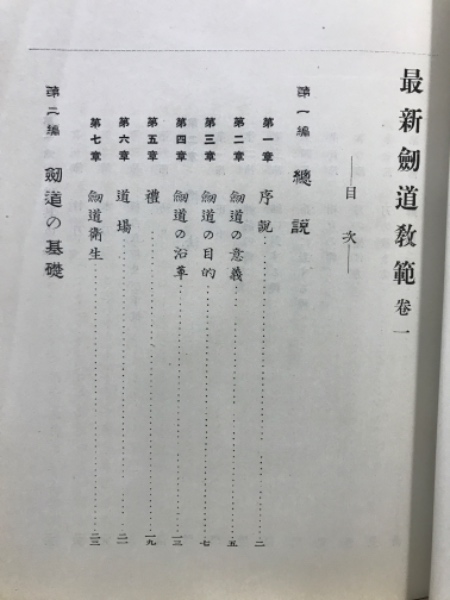 最新劍道敎範 卷一
―目次―
第一編 總說
第一章 序說……二
第二章 劍道の意義……五
第三章 劍道の目的……七
第四章 劍道の沿革……一三
第五章 禮……一九
第六章 道場……二一
第七章 劍道衛生……二三
第二編 劍道の基礎